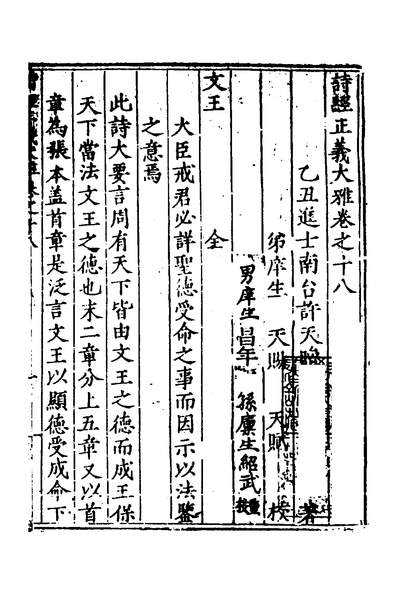 詩經正義大雅卷之十八
乙丑進士南台許天贈 著
弟庠生 天賜 天賦 校
男庠生昌年 孫廩生紹武重校
文王 全
大臣戒君必詳聖德受命之事而因示以法鑒
之意焉
此詩大要言周有天下皆由文王之德而成王保
天下當法文王之德也末二章分上五章又以首
章為張本盖首章是泛言文王以顯德受成命下